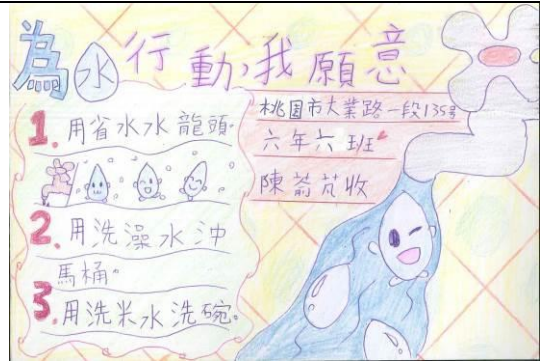 為水行動,我願意
1.用省水水龍頭。
2.用洗澡水沖
馬桶。
3.用洗米水洗碗。
桃園市大業路一段135號
六年六班
陳芃收